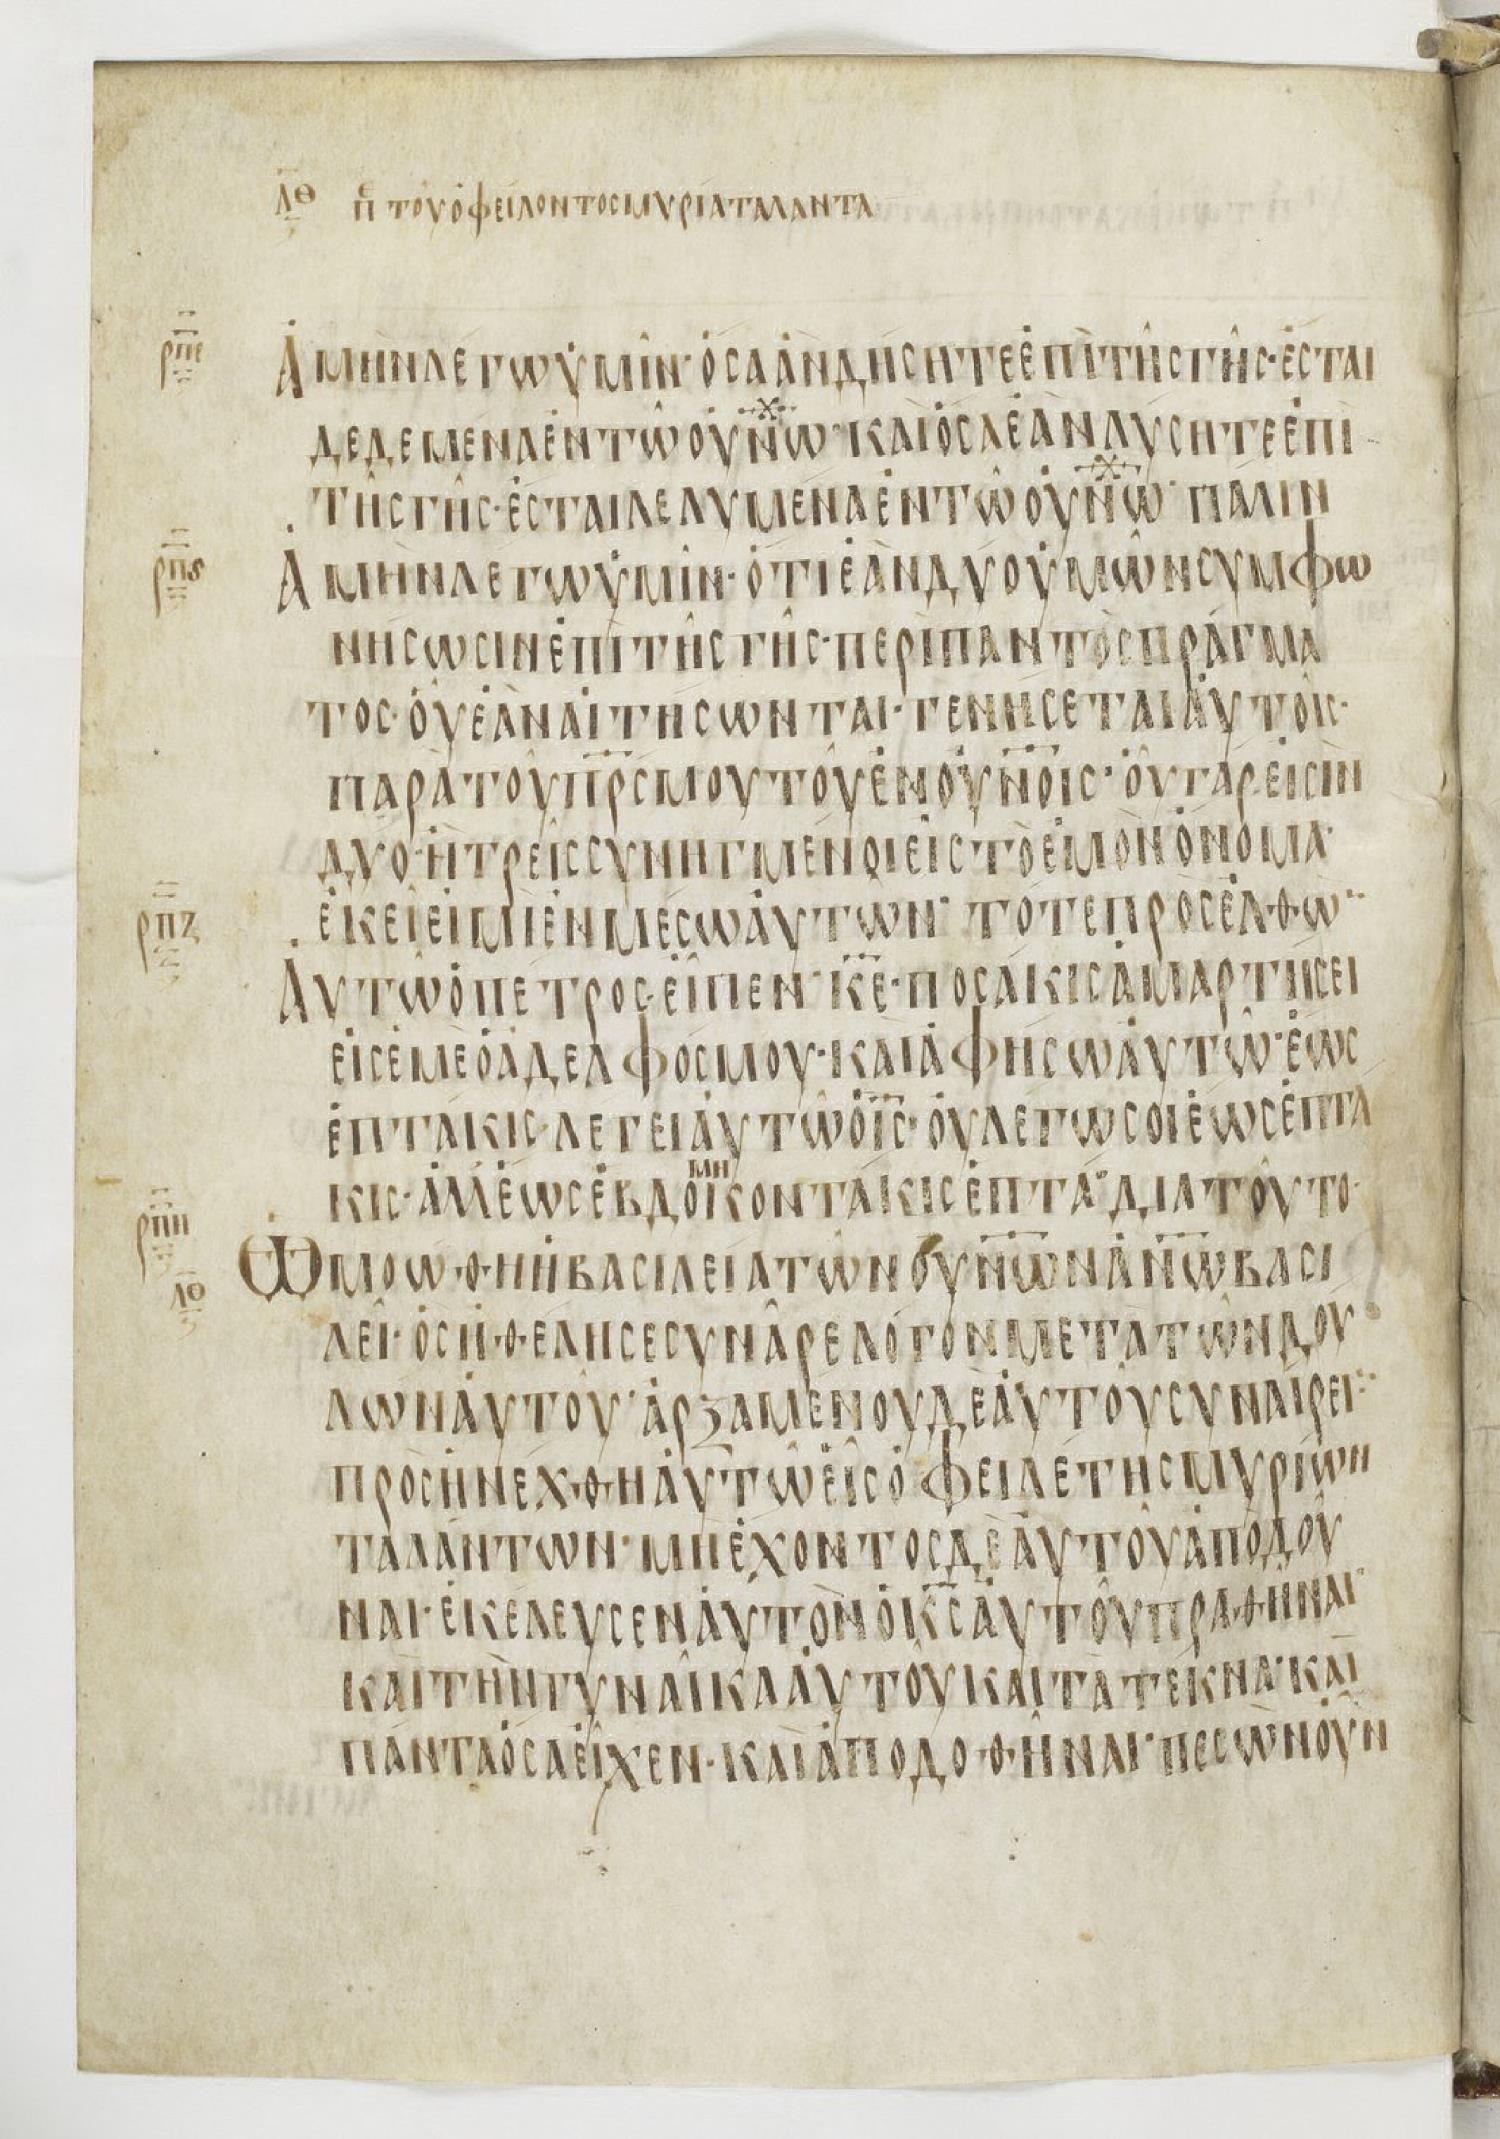 ΛΘ ΠΕ ΤΟΥ ὈΦΕΙΛΟΝΤΟΣ ΜΥΡΙΑ ΤΑΛΑΝΤΑ
ΡΠΕ
ἈΜῊΝ ΛΕΓΩ ὙΜΙ͂Ν· ὍΣΑ ἊΝ ΔΗΣΗΤΕ ἘΠῚ ΤΗ͂Σ ΓΗ͂Σ· ἜΣΤΑΙ
ΔΕΔΕΜΕΝΑ ἘΝ ΤΩ͂ ΟΥ̓ΝΩ· ΚΑῚ ὉΣΑ ἘᾺΝ ΛΥΣΗΤΕ ἘΠῚ
ΤΗ͂Σ ΓΗ͂Σ· ἜΣΤΑΙ ΛΕΛΥΜΕΝΑ ἘΝ ΤΩ͂ ΟΥ̓ΝΩ· ΠΑΛΙΝ
ΡΠϚ
ἈΜῊΝ ΛΕΓΩ ὙΜΙ͂Ν· ὍΤΙ ἘᾺΝ ΔΥΟ ὙΜΩ͂Ν ΣΥΜΦΩ
ΝΗΣΩΣΙΝ ἘΠῚ ΤΗ͂Σ ΓΗ͂Σ· ΠΕΡῚ ΠΑΝΤῸΣ ΠΡΆΓΜΑ
ΤΟΣ· ΟὟ ἘᾺΝ ΑἸΤΗΣΩΝΤΑΙ· ΓΕΝΗΣΕΤΑΙ ΑΥ̓ΤΟΙ͂Σ·
ΠΑΡᾺ ΤΟΥ͂ ΠΡΣ ΜΟΥ ΤΟΥ͂ ἘΝ ΟΥ̓ΝΟΙΣ· ΟὟ ΓΆΡ ΕἸΣΙΝ
ΔΥΟ· Ἢ ΤΡΕΙ͂Σ ΣΥΝΗΓΜΕΝΟΙ ΕἸΣ ΤῸ ἘΜῸΝ ὌΝΟΜΑ·
ἘΚΕΙ͂ ΕἸΜῚ ἘΝ ΜΕΣΩ ΑΥ̓ΤΩ͂Ν· ΤΟΤΕ ΠΡΟΣΕΛΘῺΝ
ΡΠΖ
ΑΥ̓ΤΩ͂ Ὁ ΠΕΤΡΟΣ· ΕἾΠΕΝ· ΚΕ· ΠΟΣΆΚΙΣ ἉΜΑΡΤΗΣΕΙ
ΕἸΣ ἘΜῈ Ὁ ἈΔΕΛΦΟΣ ΜΟΥ· ΚΑῚ ἈΦΗΣΩ ΑΥ̓ΤΩ͂· ἝΩΣ
ἙΠΤΑΚΙΣ· ΛΕΓΕΙ ΑΥ̓ΤΩ͂ Ὁ ΙΣ· ΟΥ̓ ΛΕΓΩ ΣΟΙ ἝΩΣ ἙΠΤΑ
ΚΙΣ· ἈΛΛ' ἝΩΣ ἙΒΔΟΜΗΚΟΝΤΑΚΙΣ ἙΠΤΑ· ΔΙΑ ΤΟΥ͂ΤΟ·
ΡΠΗ ΛΘ
ὩΜΟΙΩΘΗ Ἡ ΒΑΣΙΛΕΙΑ ΤΩ͂Ν ΟΥ̓ΝΩΝ ἈΝΩ ΒΑΣΙ
ΛΕΙ͂· ὋΣ ἨΘΕΛΗΣΕ ΣΥΝΑ͂ΡΕ ΛΌΓΟΝ ΜΕΤΑ ΤΩ͂Ν ΔΟΥ
ΛΩΝ ΑΥ̓ΤΟΥ͂· ἈΡΞΑΜΕΝΟΥ ΔῈ ΑΥ̓ΤΟΥ͂ ΣΥΝΑΙΡΕΙ·
ΠΡΟΣΗΝΕΧΘΗ ΑΥ̓ΤΩ͂ ΕἿΣ ὈΦΕΙΛΕΤΗΣ ΜΥΡΙΩΝ
ΤΑΛΆΝΤΩΝ· ΜῊ ἜΧΟΝΤΟΣ ΔῈ ΑΥ̓ΤΟΥ͂ ἈΠΟΔΟΥ͂
ΝΑΙ· ἘΚΕΛΕΥΣΕΝ ΑΥ̓ΤῸΝ Ὁ ΚΣ ΑΥ̓ΤΟΥ͂ ΠΡΑΘΗ͂ΝΑΙ·
ΚΑῚ ΤῊΝ ΓΥΝΑΙ͂ΚΑ ΑΥ̓ΤΟΥ͂ ΚΑῚ ΤᾺ ΤΕΚΝΑ· ΚΑῚ
ΠΆΝΤΑ ὍΣΑ ΕἾΧΕΝ· ΚΑῚ ἈΠΟΔΟΘΗ͂ΝΑΙ· ΠΕΣῺΝ ΟΥ̓͂Ν